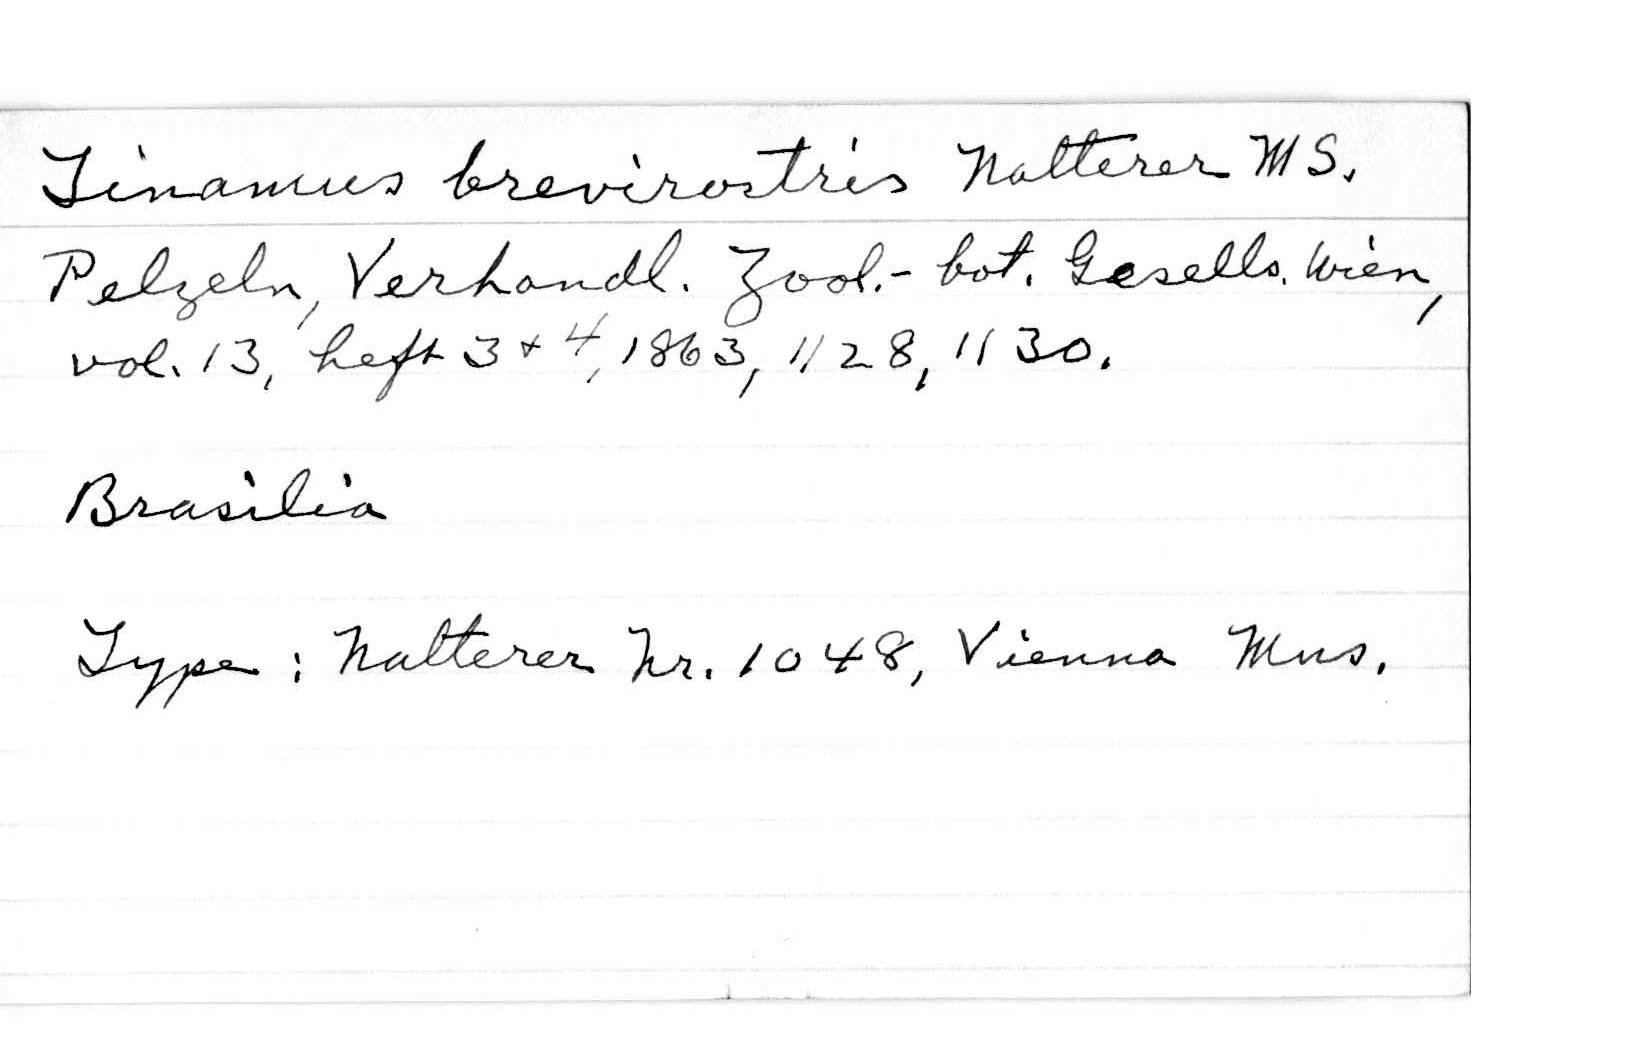 Tinamus brevirostris Natterer MS.
Pelzeln, Verhandl. Zool.-bot. Gesells. Wien,
vol. 13, heft 3 + 4, 1863, 1128, 1130.
Brasilia
Type : Natterer Nr. 1048, Vienna Mus.